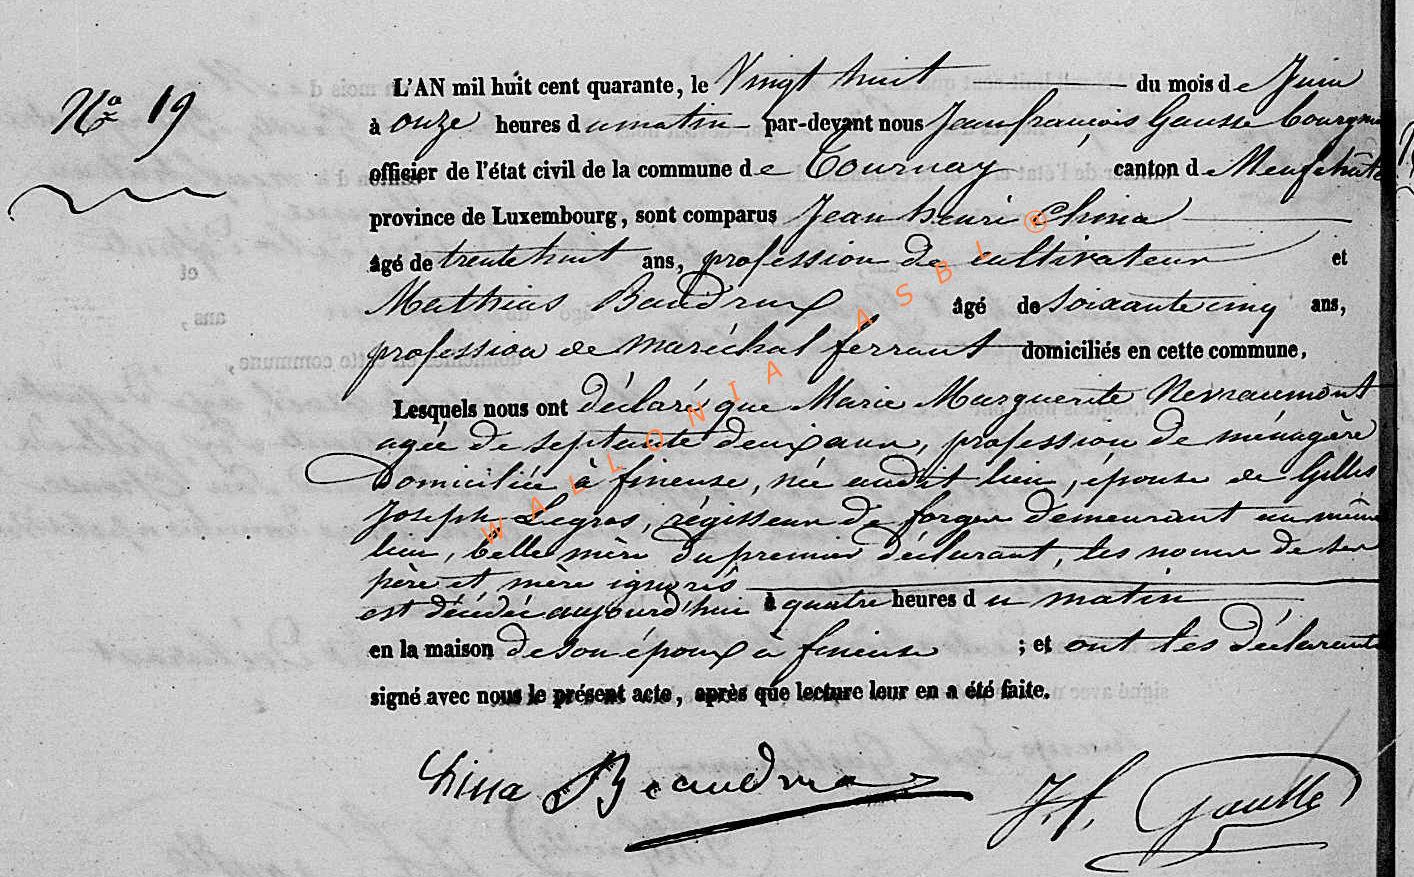 N° 19
L'AN mil huit cent quarante, le Vingt huit du mois de Juin
à onze heures du matin par-devant nous Jean françois Gausse bourgm
officier de l'état civil de la commune de Tournay canton de Neufchât
province de Luxembourg, sont comparus Jean henri China
âgé de trente huit ans, profession de cultivateur et
Mathias Baudrux âgé de soixante cinq ans,
profession de maréchal ferrant domiciliés en cette commune,
Lesquels nous ont déclaré que Marie Marguerite
agée de septante deux ans, profession de ménagère
Domiciliée à fineuse, née audit lieu, épouse de Gilles
Joseph Legros, régisseur de forges demeurant au même
lieu, belle mère du premier déclarant, les noms de ses
père et mère ignorés
est décédée aujourd'hui à quatre heures du matin
en la maison de son époux à fineuse ; et ont les déclarants
signé avec nous le présent acte, après que lecture leur en a été faite.
China J. f. Gausse
WALLONIA ASBL ®